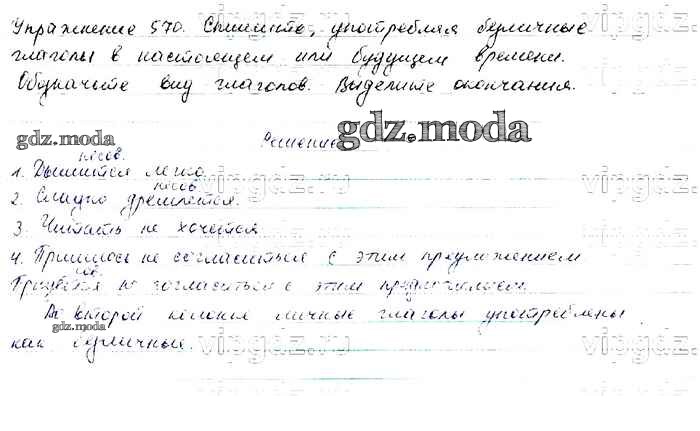 Упражнение 570. Спишите, употребляя безличные
глаголы в настоящем или будущем времени.
Обозначьте вид глаголов. Выделите окончания.
gdz.moda
Решение
gdz.moda
несов.
1. Дышится легко.
несов.
2. Сладко дремлется.
3. Читать не хочется
4. Пришлось не согласиться с этим предложением
сов.
Придётся не согласиться с этим предложением.
Во второй колонке личные глаголы употреблены
gdz.moda
как безличные.